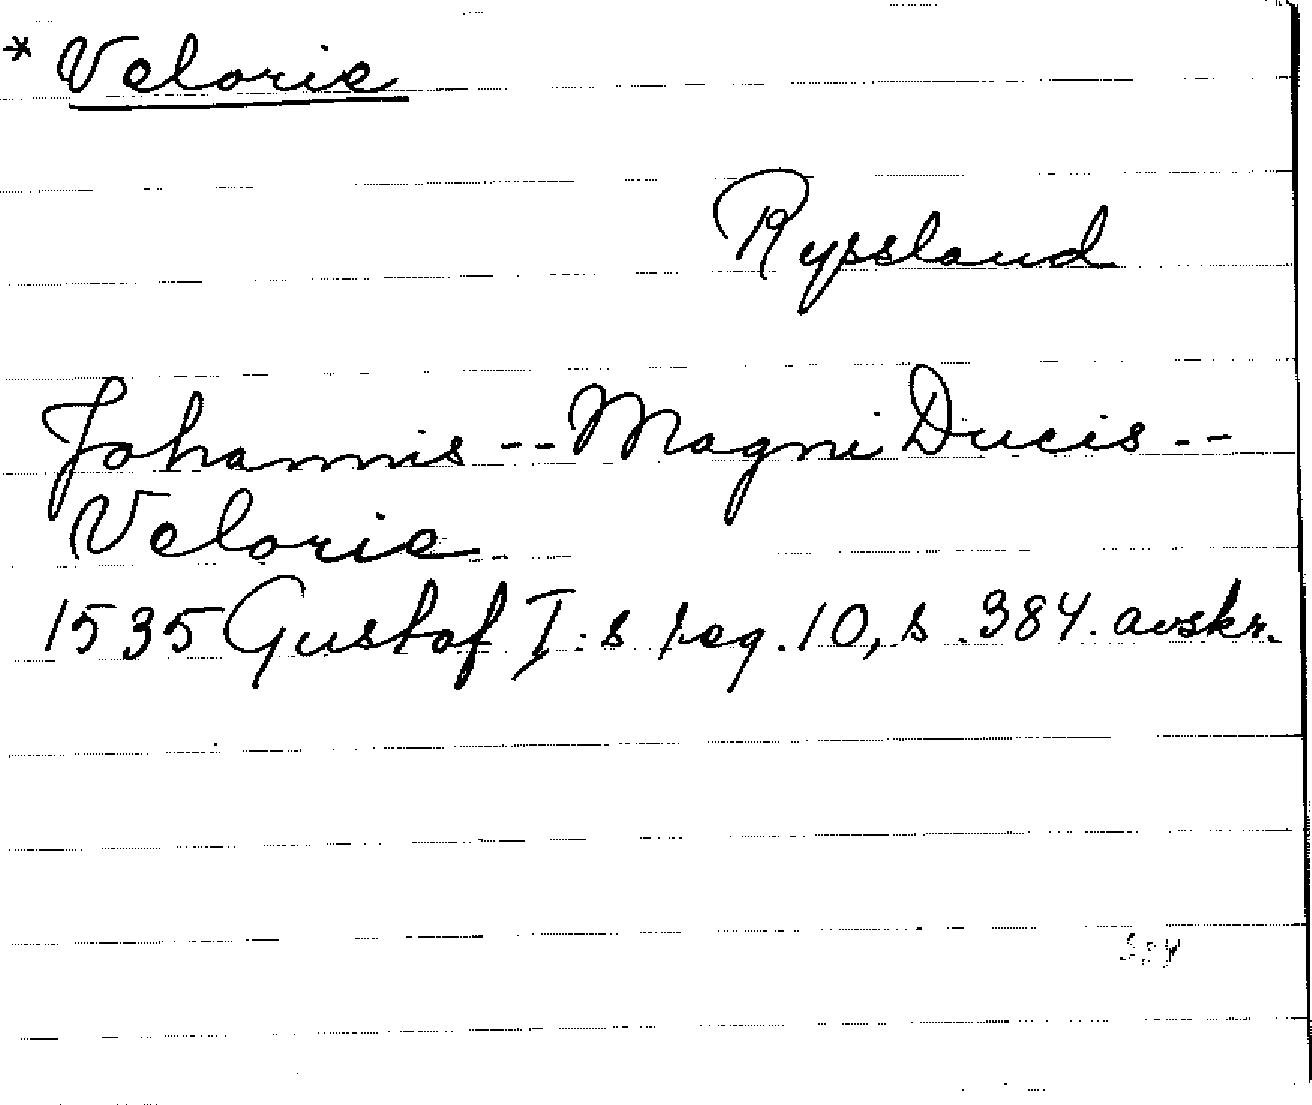 * Velorie
Ryssland
Johannis -- Magni Ducis --
Velorie
1535 Gustof I:s reg. 10, s. 384. avskr.